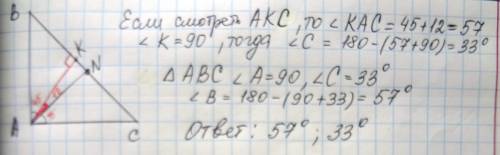 B
Если смотреть AKC, то ∠KAC = 45+12 = 57
∠K = 90°, тогда ∠C = 180-(57+90) = 33°
K
N
△ABC ∠A=90, ∠C=33°
∠B = 180-(90+33) = 57°
A
C
Ответ: 57°; 33°